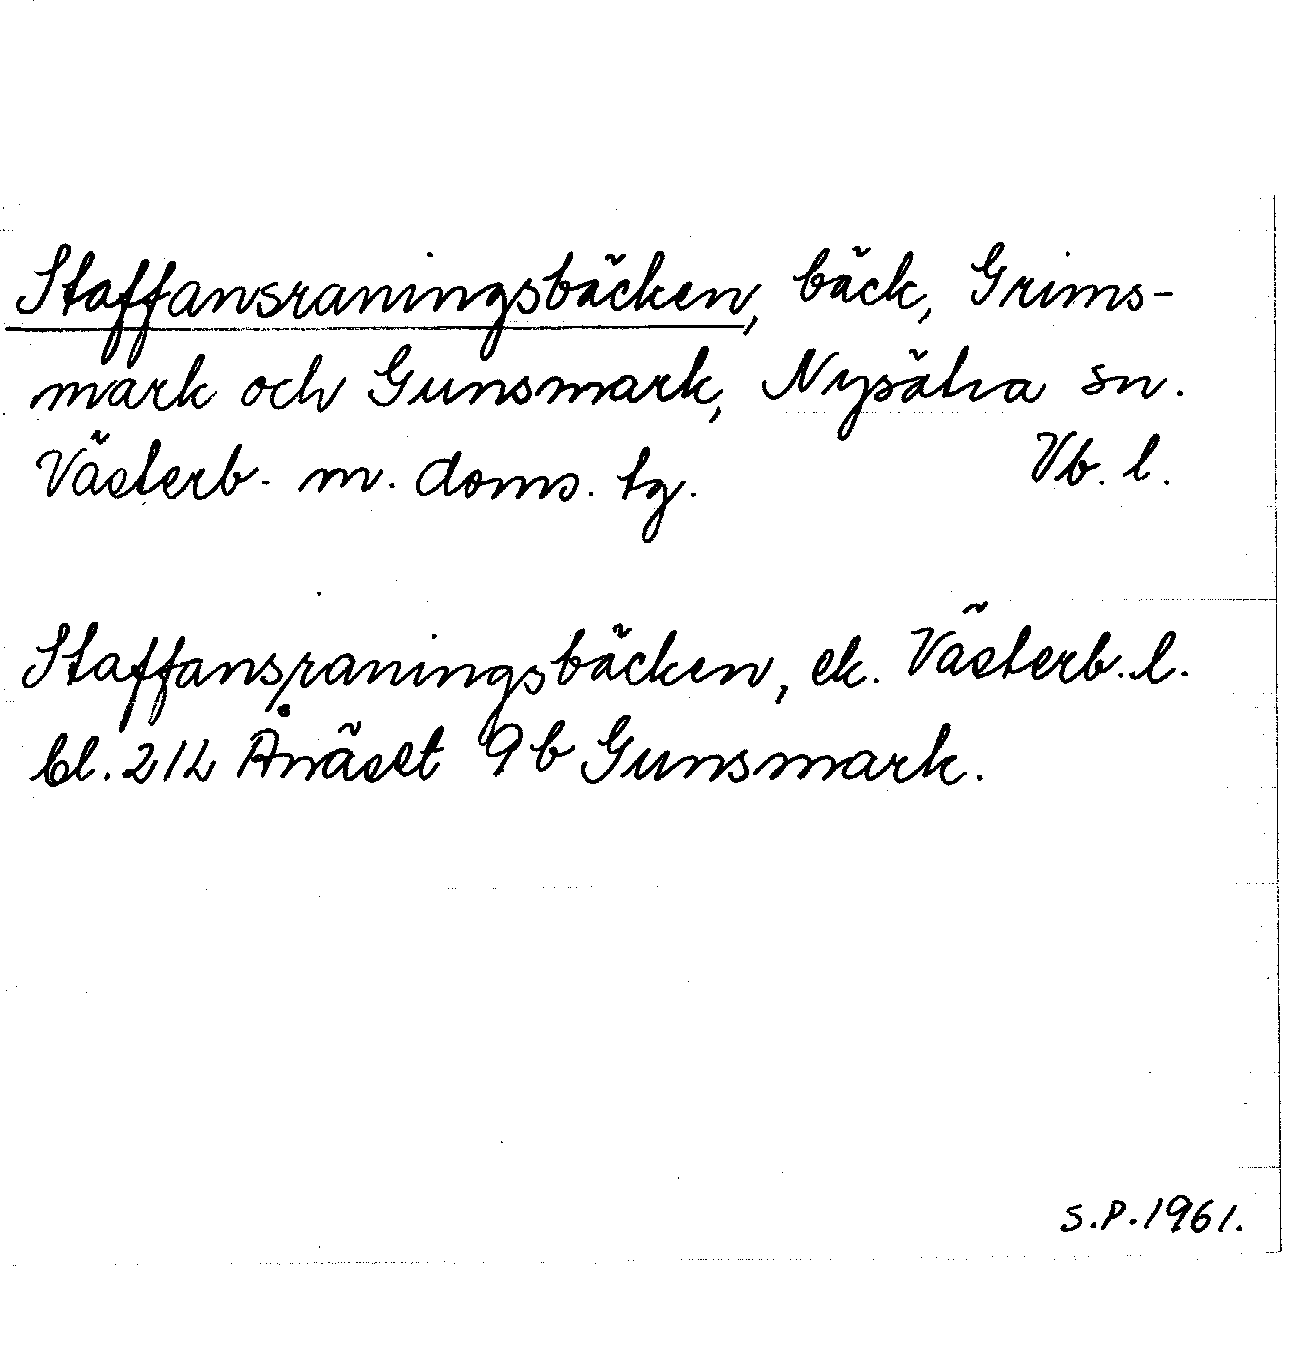 Staffansraningsbäcken, bäck, Grims-
mark och Gunsmark, Nysätra sn.
Västerb. m. doms. tg. Vb. l.
Staffansraningsbäcken, ek. Västerb. l.
bl. 212 Ånäset 9b Gunsmark.
S.P. 1961.